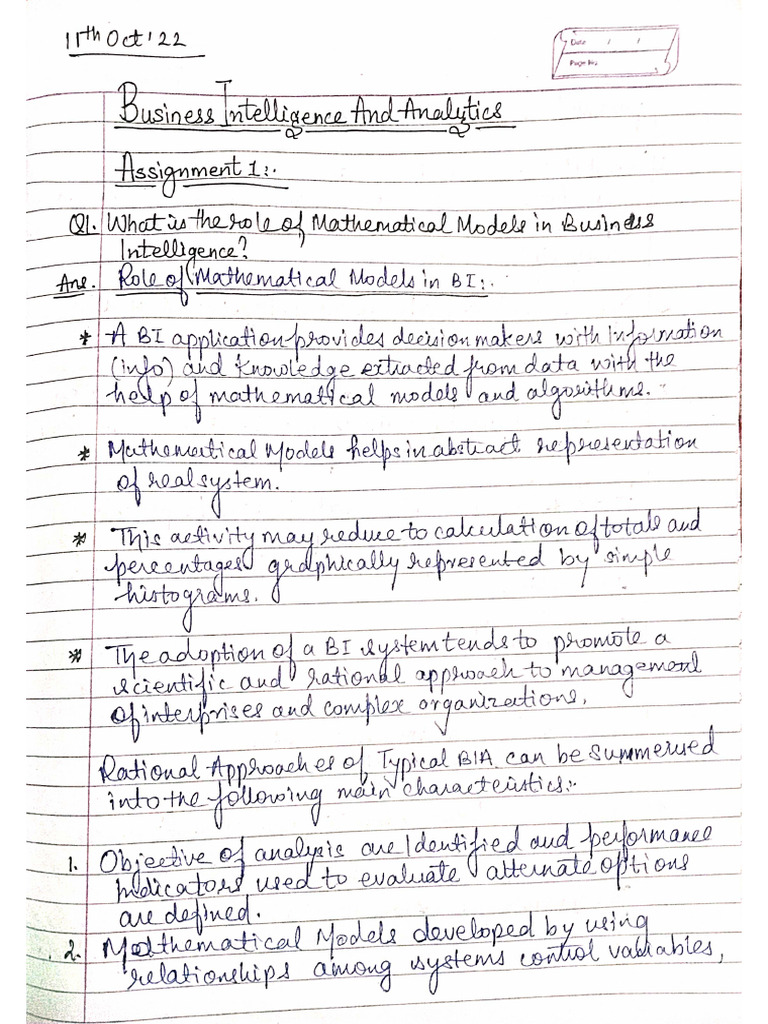 11th Oct'22
Date / /
Page No.
Business Intelligence And Analytics
Assignment 1:.
Q1. What is the role of Mathematical Models in Business
Intelligence?
Ans. Role of Mathematical Models in BI:.
* A BI application provides decision makers with Information
(info) and knowledge extracted from data with the
help of mathematical models and algorithms.
* Mathematical Models helps in abstract representation
of real system.
* This activity may reduce to calculation of totals and
percentages graphically represented by simple
histograms.
* The adoption of a BI system tends to promote a
scientific and rational approach to management
of interprises and complex organizations.
Rational Approaches of Typical BIA can be summersed
into the following main characteristics:-
1. Objective of analysis are Identified and performance
indicators used to evaluate alternate options
are defined.
2. Mathematical Models developed by using
relationships among systems control variables,